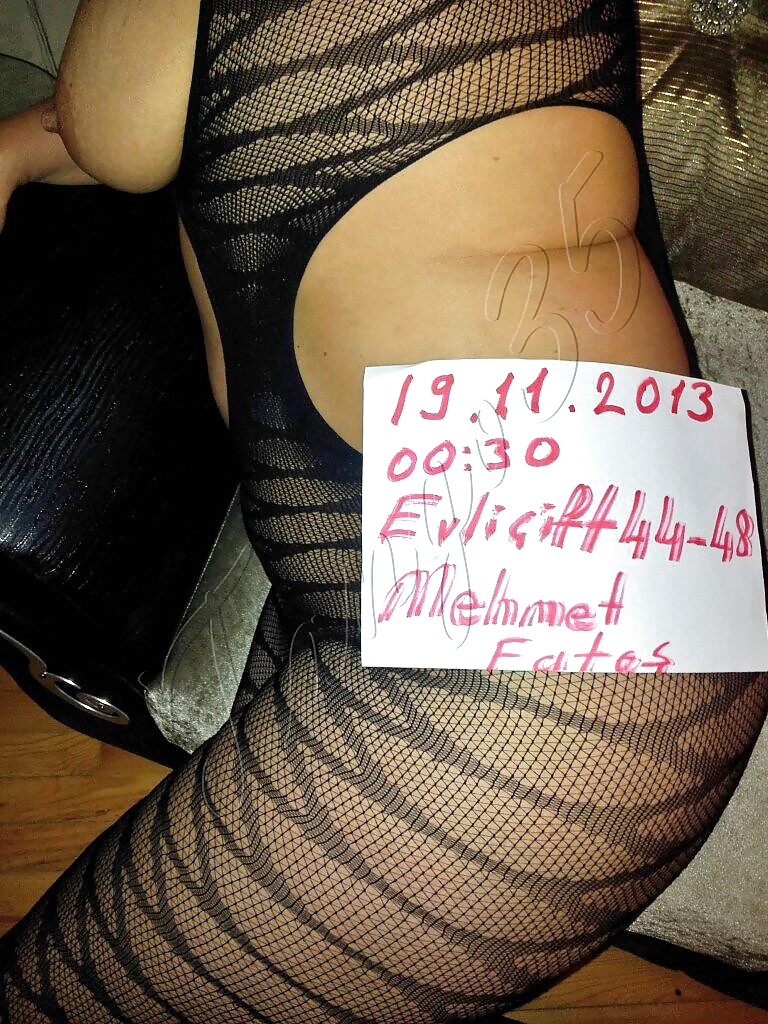 19.11.2013
00:30
Evliçift44-48
Mehmet
Fatoş
35